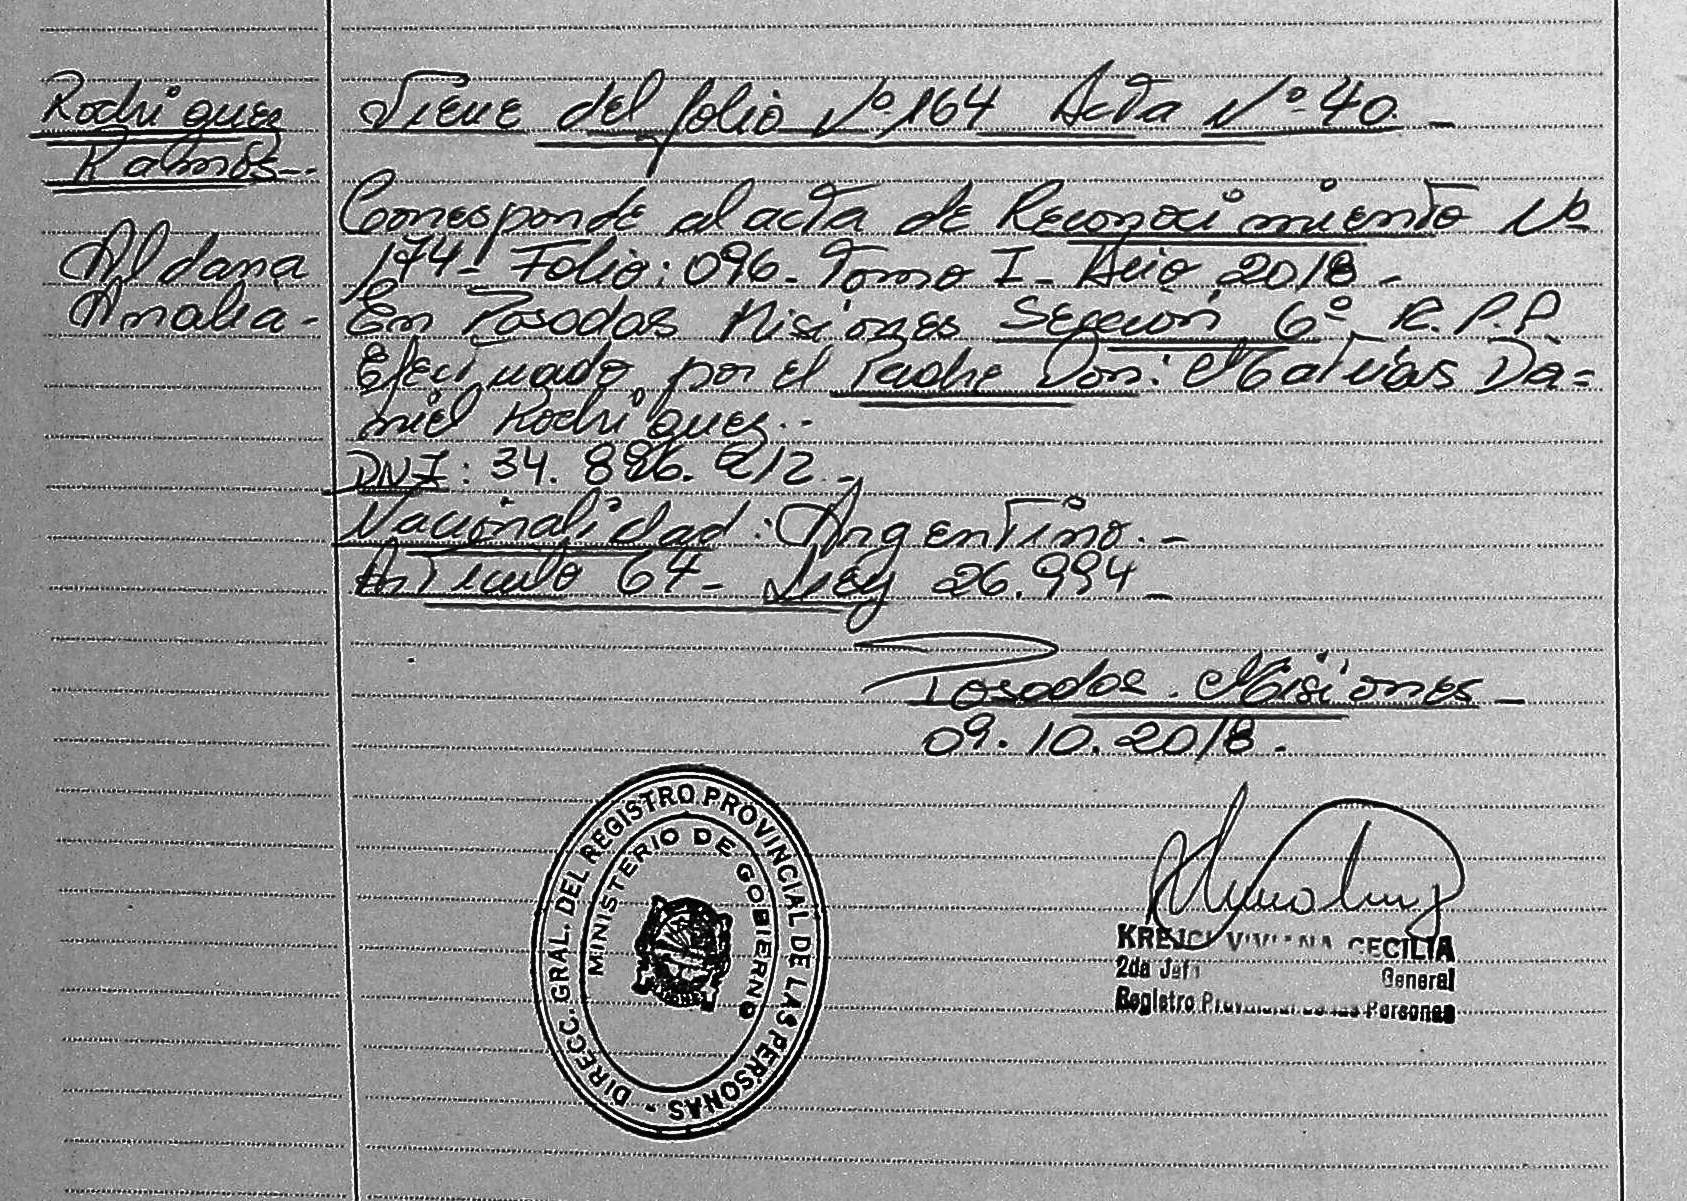 Rodriguez
Ramos-.
Aldana
Analia-
Viene del folio Nº 164 Acta Nº 40.-
Corresponde al acta de Reconocimiento Nº
174- Folio: 096- Tomo I- Año 2018-
En Posadas Misiones Sección 6º R.P.P.
Efectuado por el Padre Don: Matías Da=
niel Rodriguez.-
DNI: 34.896.212.-
Nacionalidad: Argentino.-
Artículo 64- Ley 26.994-
Posadas. Misiones-
09.10.2018.
DIRECC. GRAL. DEL REGISTRO PROVINCIAL DE LAS PERSONAS -
MINISTERIO DE GOBIERNO
KREJCI VIVIANA CECILIA
2da Jefa General
Registro Provincial de las Personas